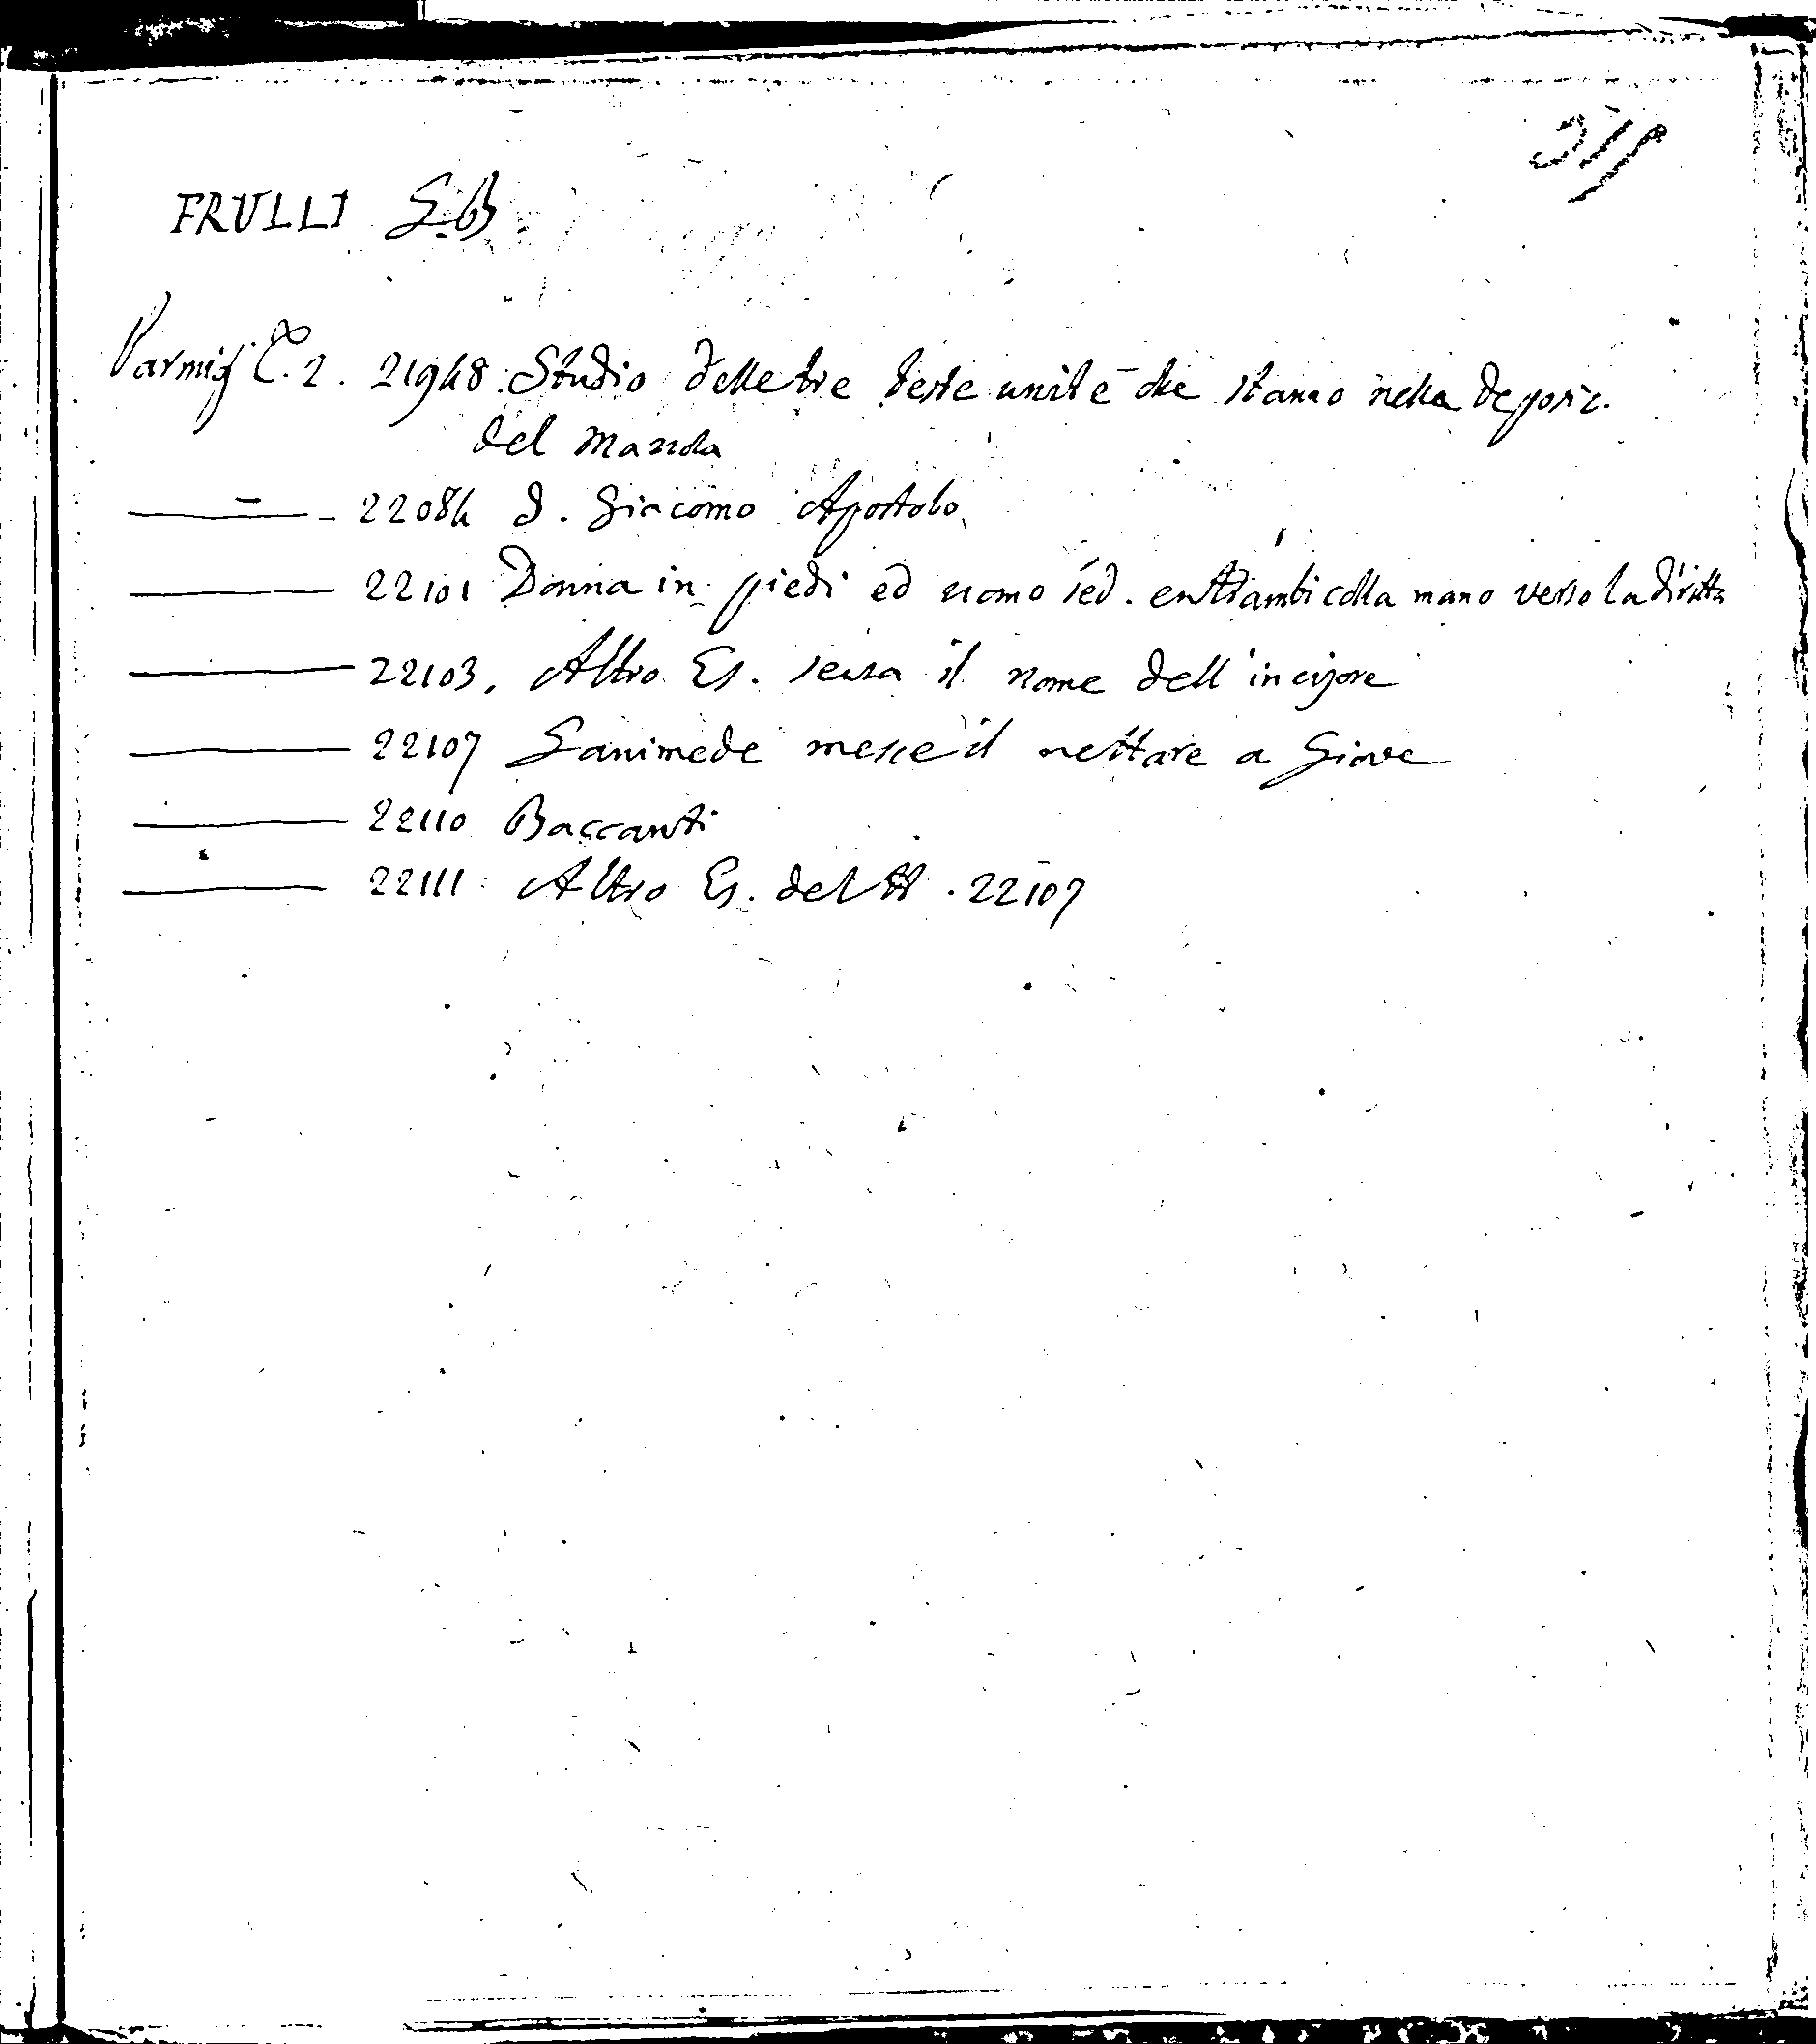 FRULLI G.B
Parmig C. 2. 21948. Studio delle tre teste unite che stanno nella deposiz.
del Mazzola
22084 S. Giacomo Apostolo
22101 Donna in piedi ed uomo sed. entrambi colla mano verso la diritta
22103. Altro Es. senza il nome dell'incisore
22107 Ganimede mesce il nettare a Giove
22110 Baccanti
22111 Altro Es. del N. 22107